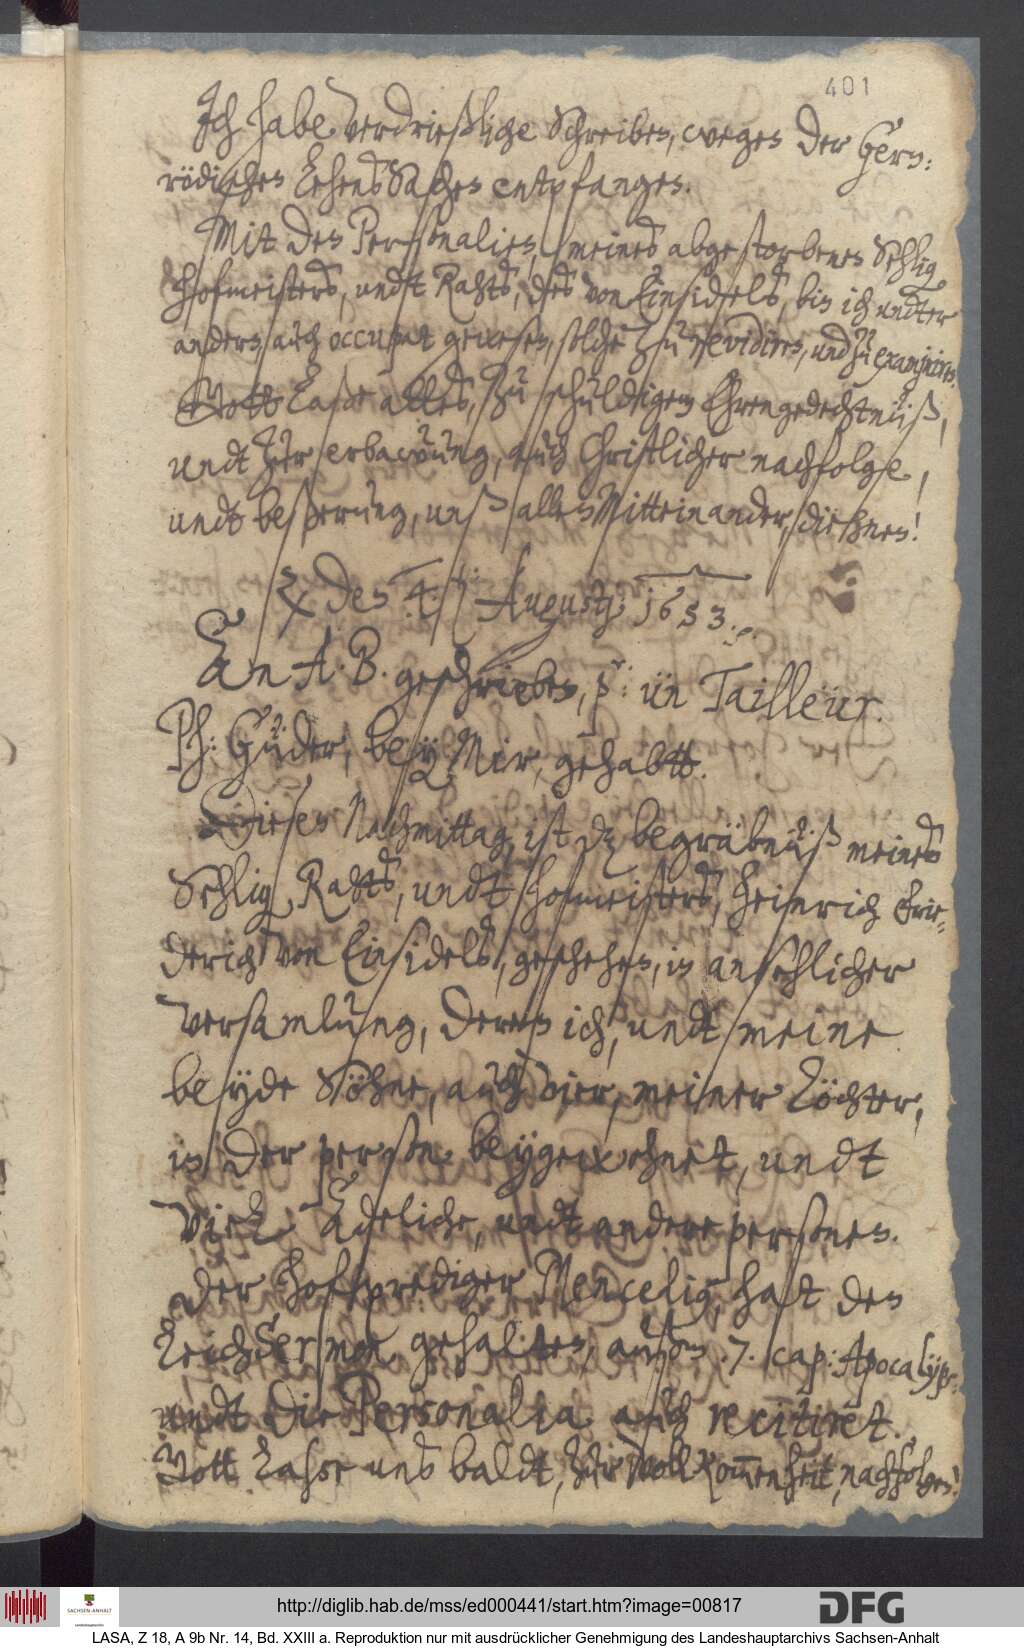 401
Ich habe verdrießliche Schreiben, wegen der Gern:
rödischen Lehens Sachen entpfangen.
Mit den Personalien, meines abgestorbenen Sehlig
Hofmeisters, undt Rahts, des von Einsidels, bin ich undter
andern, auch occupat gewesen, solche zu revidiren, und zu examiniren.
Gott laße alles, zu schuldigem Ehrengedechtnüß,
undt zur erbawung, auch Christlicher nachfolge,
undt beßerung, unß allen Mitteinander, diehnen!
den 4. Augusty: 1653.
An A. B. geschrieben, p: ün Tailleur.
Ph: Güder, beÿ Mir, gehabtt.
Diesen Nachmittag, ist dz begräbnüß meines
Sehlig Rahts, undt Hofmeisters, Heinrich Frie-
derich von Einsidels, geschehen, in ansehlicher
versamlung, deren ich, undt meine
beÿde Söhne, auch vier, meiner Töchter,
in der person beÿgewohnet, undt
viel Adeliche, undt andere personen.
Der hofprediger Mencelig, hatt den
Leich Sermon, gehalten, außm .7. cap: Apocalÿps:
undt die Personalia auch recitiret.
Gott laße uns baldt, zur vollkommenheit, nachfolgen!
SACHSEN-ANHALT
http://diglib.hab.de/mss/ed000441/start.htm?image=00817
DFG
LASA, Z 18, A 9b Nr. 14, Bd. XXIII a. Reproduktion nur mit ausdrücklicher Genehmigung des Landeshauptarchivs Sachsen-Anhalt